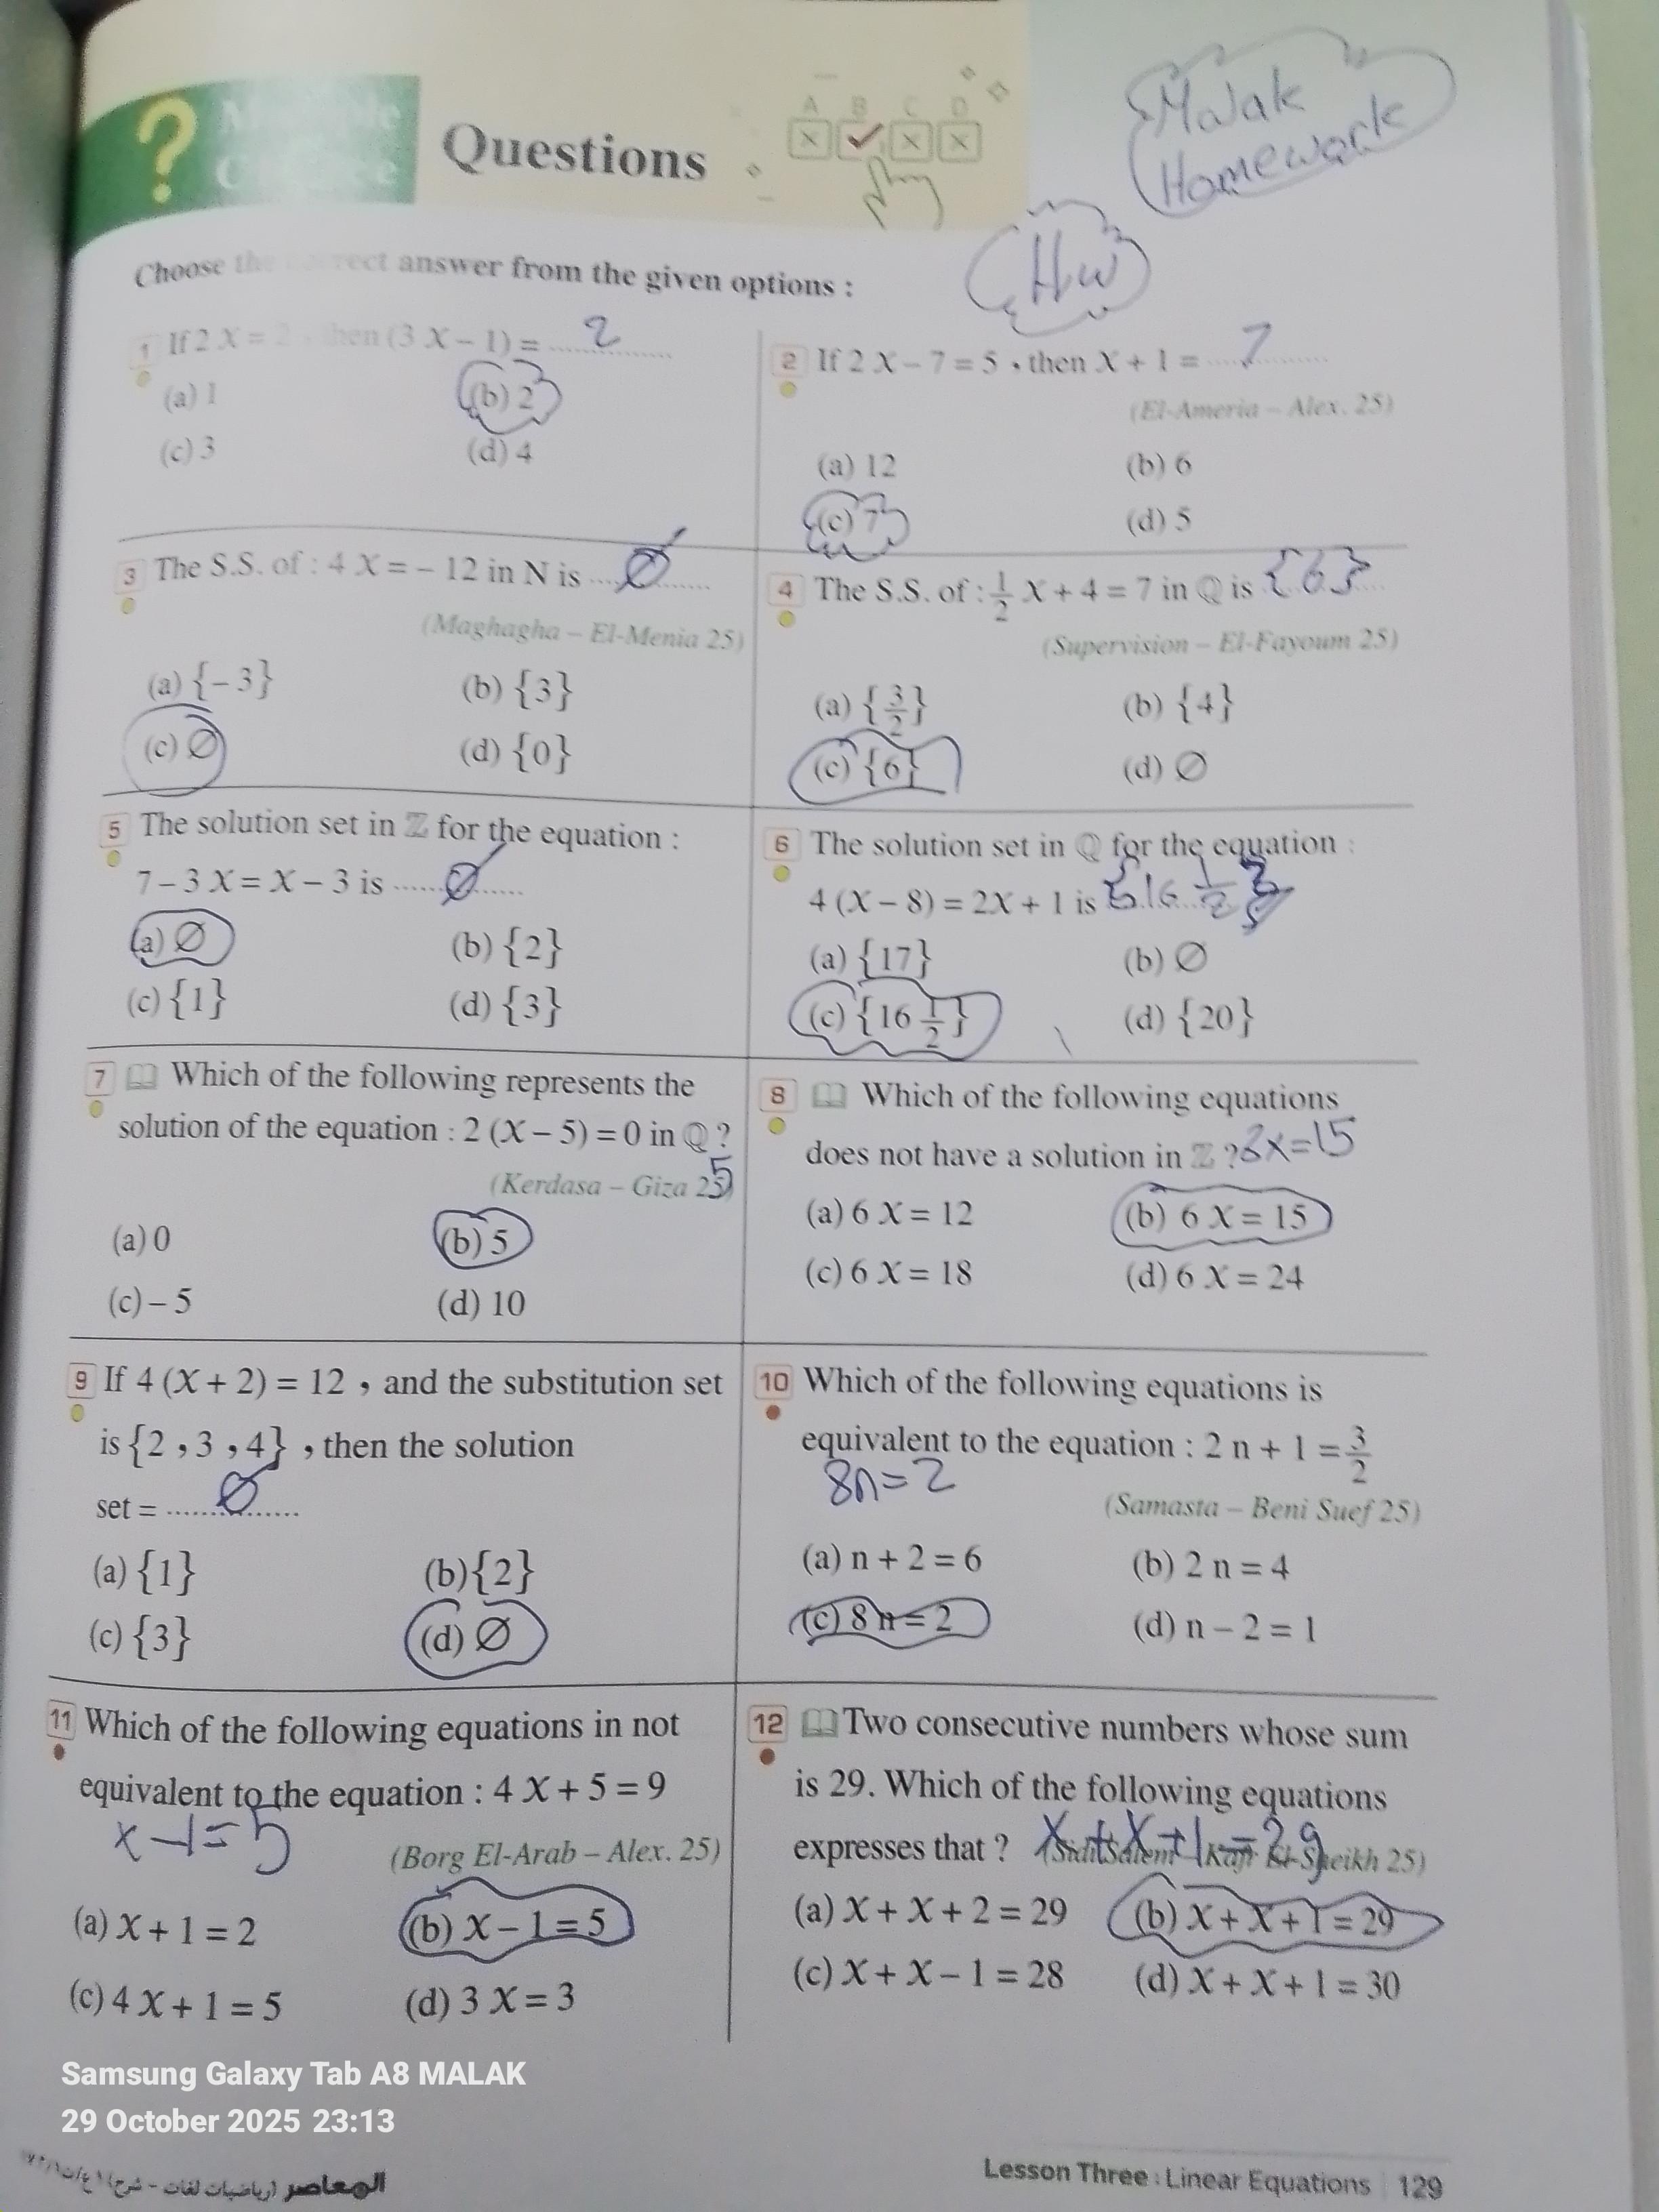 Malak
Homework
Multiple
Choice
Questions
A B C D
HW
Choose the correct answer from the given options :
1 If 2 X = 2 , then (3 X – 1) = ........ 2
(a) 1 (b) 2
(c) 3 (d) 4
2 If 2 X – 7 = 5 , then X + 1 = ........ 7
(El-Ameria – Alex. 25)
(a) 12 (b) 6
(c) 7 (d) 5
3 The S.S. of : 4 X = – 12 in N is ........ Ø
(Maghagha – El-Menia 25)
(a) {– 3} (b) {3}
(c) Ø (d) {0}
4 The S.S. of : 1/2 X + 4 = 7 in ℚ is {6}
(Supervision – El-Fayoum 25)
(a) {3/2} (b) {4}
(c) {6} (d) Ø
5 The solution set in ℤ for the equation :
7 – 3 X = X – 3 is ........ Ø
(a) Ø (b) {2}
(c) {1} (d) {3}
6 The solution set in ℚ for the equation :
4 (X – 8) = 2X + 1 is {16 1/2}
(a) {17} (b) Ø
(c) {16 1/2} (d) {20}
7 Which of the following represents the
solution of the equation : 2 (X – 5) = 0 in ℚ ?
(Kerdasa – Giza 25) 5
(a) 0 (b) 5
(c) – 5 (d) 10
8 Which of the following equations
does not have a solution in ℤ ? 6x=15
(a) 6 X = 12 (b) 6 X = 15
(c) 6 X = 18 (d) 6 X = 24
9 If 4 (X + 2) = 12 , and the substitution set
is {2 , 3 , 4} , then the solution
set = ........ Ø
(a) {1} (b) {2}
(c) {3} (d) Ø
10 Which of the following equations is
equivalent to the equation : 2 n + 1 = 3/2
8n=2
(Samasta – Beni Suef 25)
(a) n + 2 = 6 (b) 2 n = 4
(c) 8 n = 2 (d) n – 2 = 1
11 Which of the following equations in not
equivalent to the equation : 4 X + 5 = 9
x-1=5
(Borg El-Arab – Alex. 25)
(a) X + 1 = 2 (b) X – 1 = 5
(c) 4 X + 1 = 5 (d) 3 X = 3
12 Two consecutive numbers whose sum
is 29. Which of the following equations
expresses that ? (Sidi Salem – Kafr El-Sheikh 25)
x+x+1=29
(a) X + X + 2 = 29 (b) X + X + 1 = 29
(c) X + X – 1 = 28 (d) X + X + 1 = 30
Samsung Galaxy Tab A8 MALAK
29 October 2025 23:13
المعاصر (رياضيات لغات - شرح)
Lesson Three : Linear Equations 129